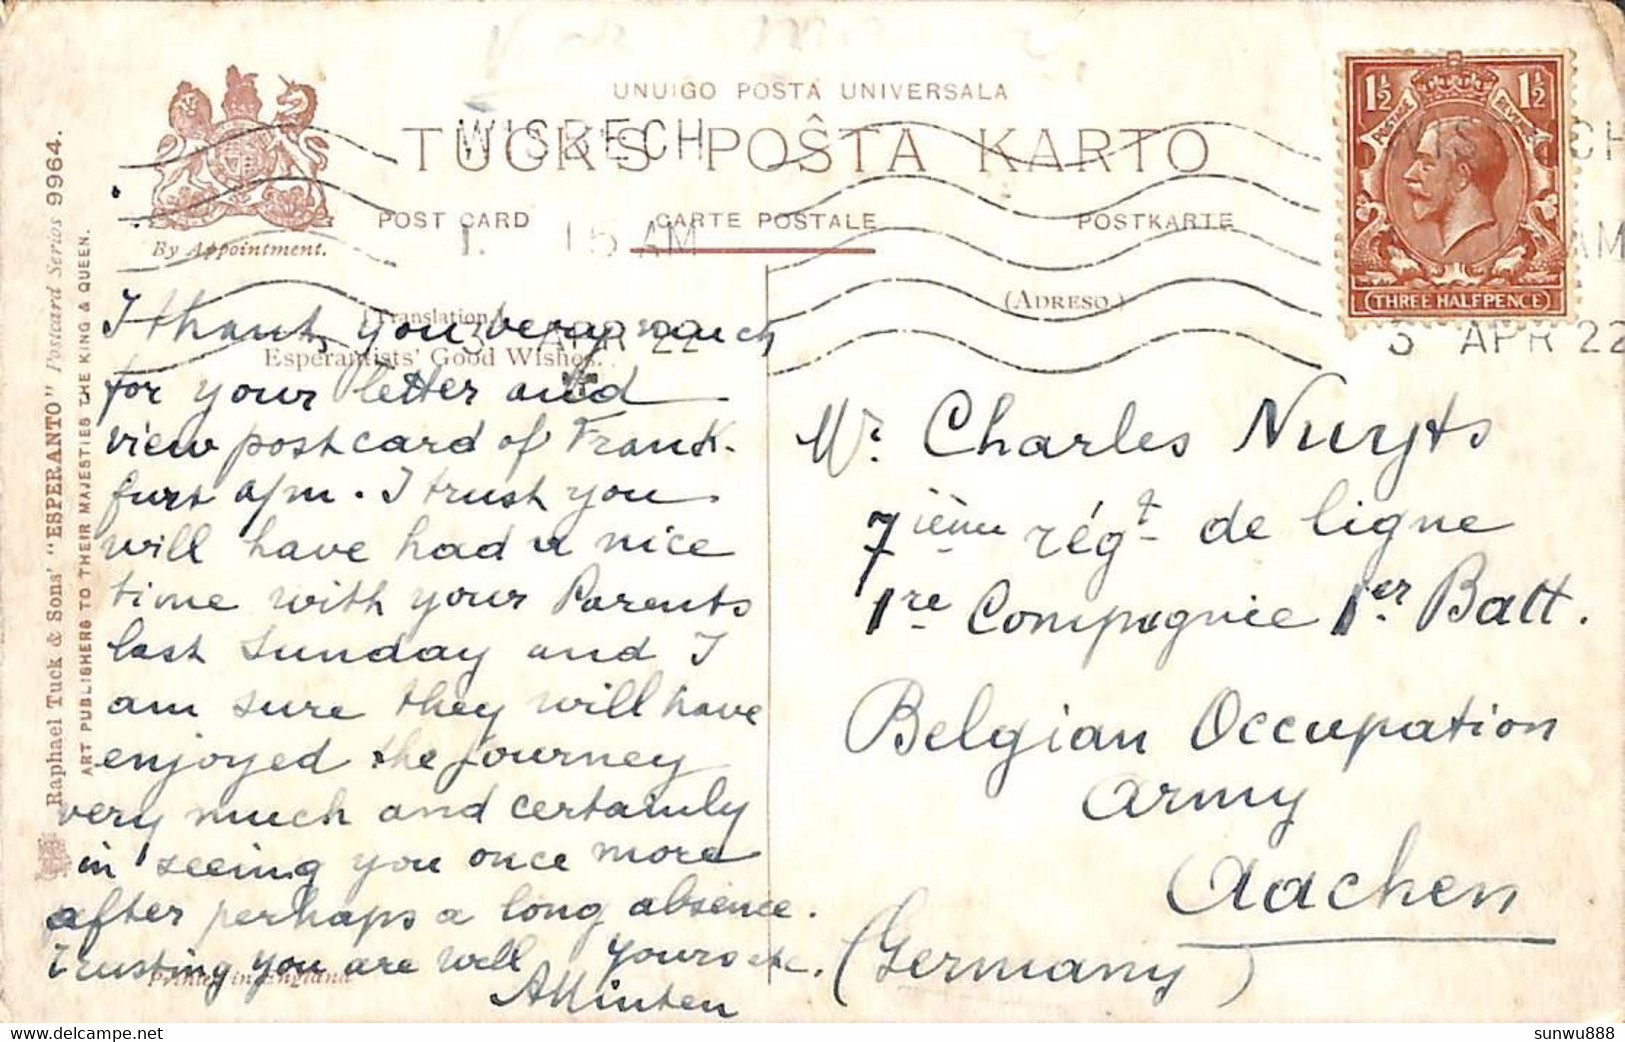 UNUIGO POSTA UNIVERSALA
TUCK'S POŜTA KARTO
WISBECH
POST CARD CARTE POSTALE POSTKARTE
1. 15 AM
3 APR 22
By Appointment.
(Translation.)
Esperantists' Good Wishes.
(ADRESO.)
1½ 1½
POSTAGE REVENUE
THREE HALFPENCE
WISBECH
AM
3 APR 22
Raphael Tuck & Sons' "ESPERANTO" Postcard Series 9964.
ART PUBLISHERS TO THEIR MAJESTIES THE KING & QUEEN.
I thank you very much
for your letter and
view postcard of Frank-
furt a/m. I trust you
will have had a nice
time with your Parents
last Sunday and I
am sure they will have
enjoyed the journey
very much and certainly
in seeing you once more
after perhaps a long absence.
Trusting you are well Yours etc.
Printed in England
Mr. Charles Nuyts
7ième régt. de ligne
1re Compagnie 1er Batt.
Belgian Occupation
Army
Aachen
(Germany)
sunwu888